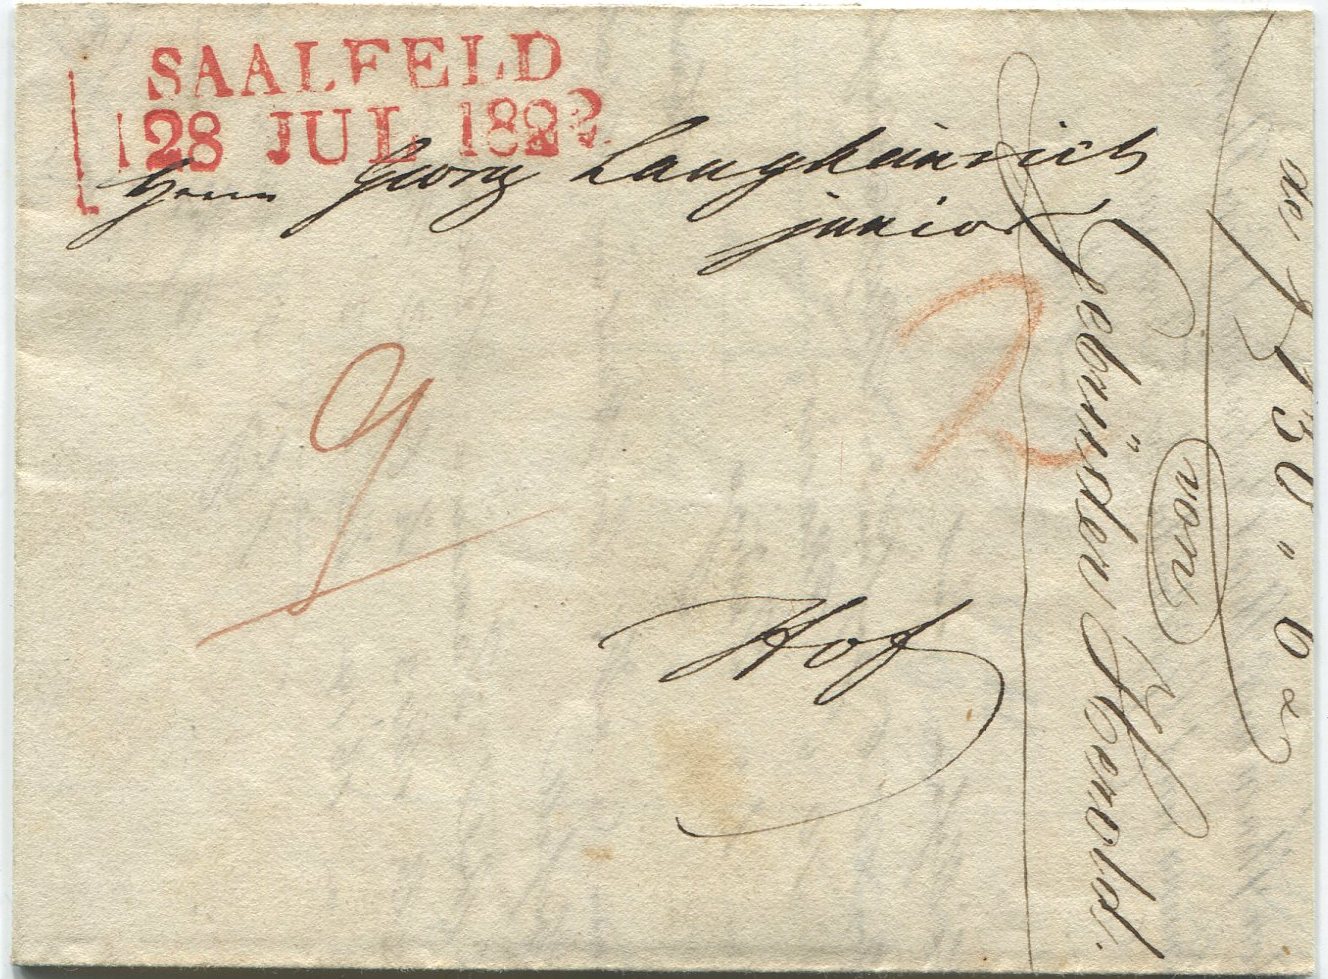 SAALFELD
28 JUL 182
Herrn Georg Laugheinrich
junior
2
9
Hof
Gebrüder Herold.
von